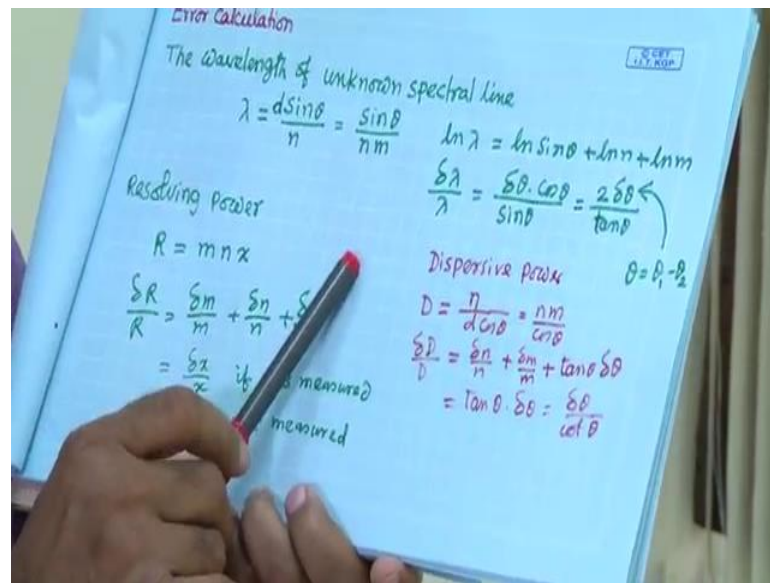 Error Calculation
© CET
I.I.T. KGP
The wavelength of unknown spectral line
λ = dsinθ/n = sinθ/nm
ln λ = ln sinθ + ln n + ln m
δλ/λ = δθ·cosθ/sinθ = 2δθ/tanθ
θ = θ₁-θ₂
Resolving Power
R = m n x
δR/R = δm/m + δn/n +
= δx/x if measured
measured
Dispersive Power
D = n/dcosθ = nm/cosθ
δD/D = δn/n + δm/m + tanθ δθ
= Tanθ · δθ = δθ/cotθ